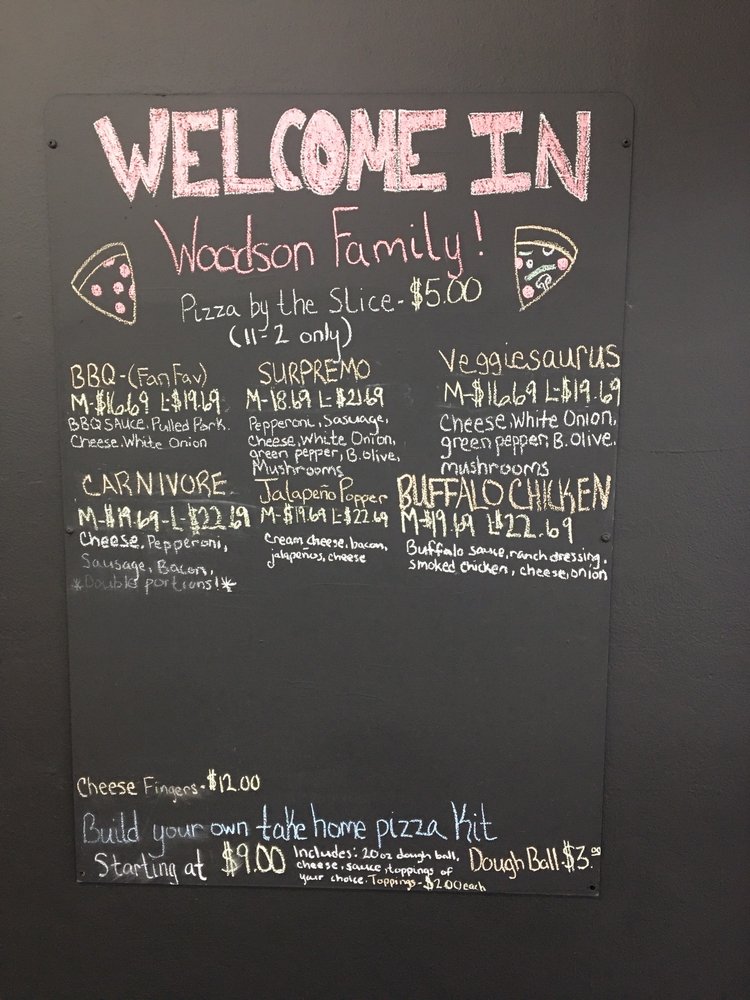 WELCOME IN
Woodson Family!
Pizza by the Slice - $5.00
(11-2 only)
BBQ-(Fan Fav)
M-$16.69 L-$19.69
BBQ SAUCE, Pulled Pork,
Cheese, White Onion
SURPREMO
M-18.69 L-$21.69
Pepperoni, Sasuage,
Cheese, White Onion,
green pepper, B. olive,
Mushrooms
Veggiesaurus
M-$16.69 L-$19.69
Cheese, White Onion,
green pepper, B. olive,
mushrooms
CARNIVORE
M-$19.69-L-$22.69
Cheese, Pepperoni,
Sausage, Bacon,
*Double portions!*
Jalapeño Popper
M-$19.69 L-$22.69
Cream cheese, bacon,
jalapeños, cheese
BUFFALO CHICKEN
M-$19.69 L-$22.69
Buffalo sauce, ranch dressing,
smoked chicken, cheese, onion
Cheese Fingers - $12.00
Build your own take home pizza Kit
Starting at $9.00
Includes: 20oz dough ball,
cheese, sauce, toppings of
your choice. Toppings - $2.00 each
Dough Ball - $3.00